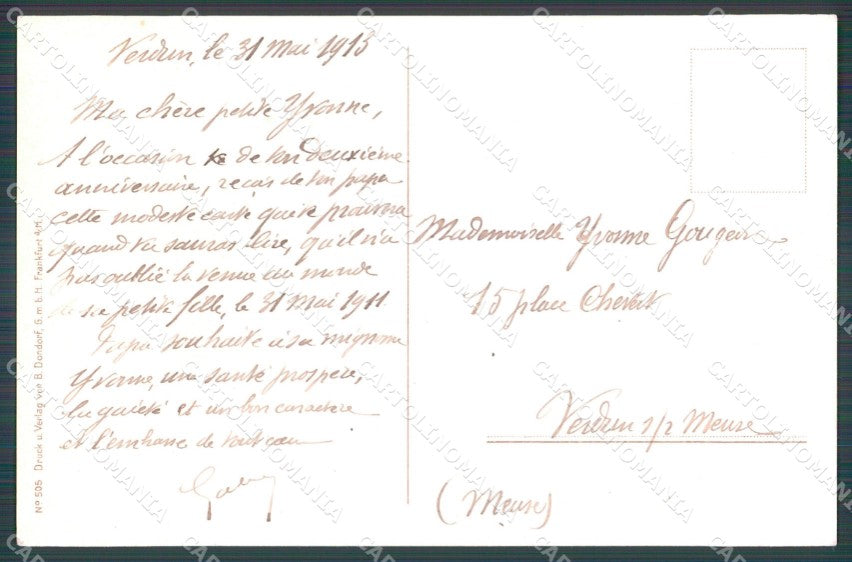 Verdun, le 31 Mai 1913
Ma chère petite Yvonne,
A l'occasion de ton deuxième
anniversaire, reçois de ton papa
cette modeste carte qui te prouvera
quand tu sauras lire, qu'il n'a
pas oublié la venue au monde
de sa petite fille, le 31 Mai 1911
Papa souhaite à sa mignonne
Yvonne, une santé prospère,
la gaieté et un bon caractère
et l'embrasse de tout cœur
Mademoiselle Yvonne
15 place Chevert
Verdun s/ Meuse
(Meuse)
No 505 Druck u. Verlag von B. Dondorf, G. m. b. H. Frankfurt a/M.
CARTOLINOMANIA